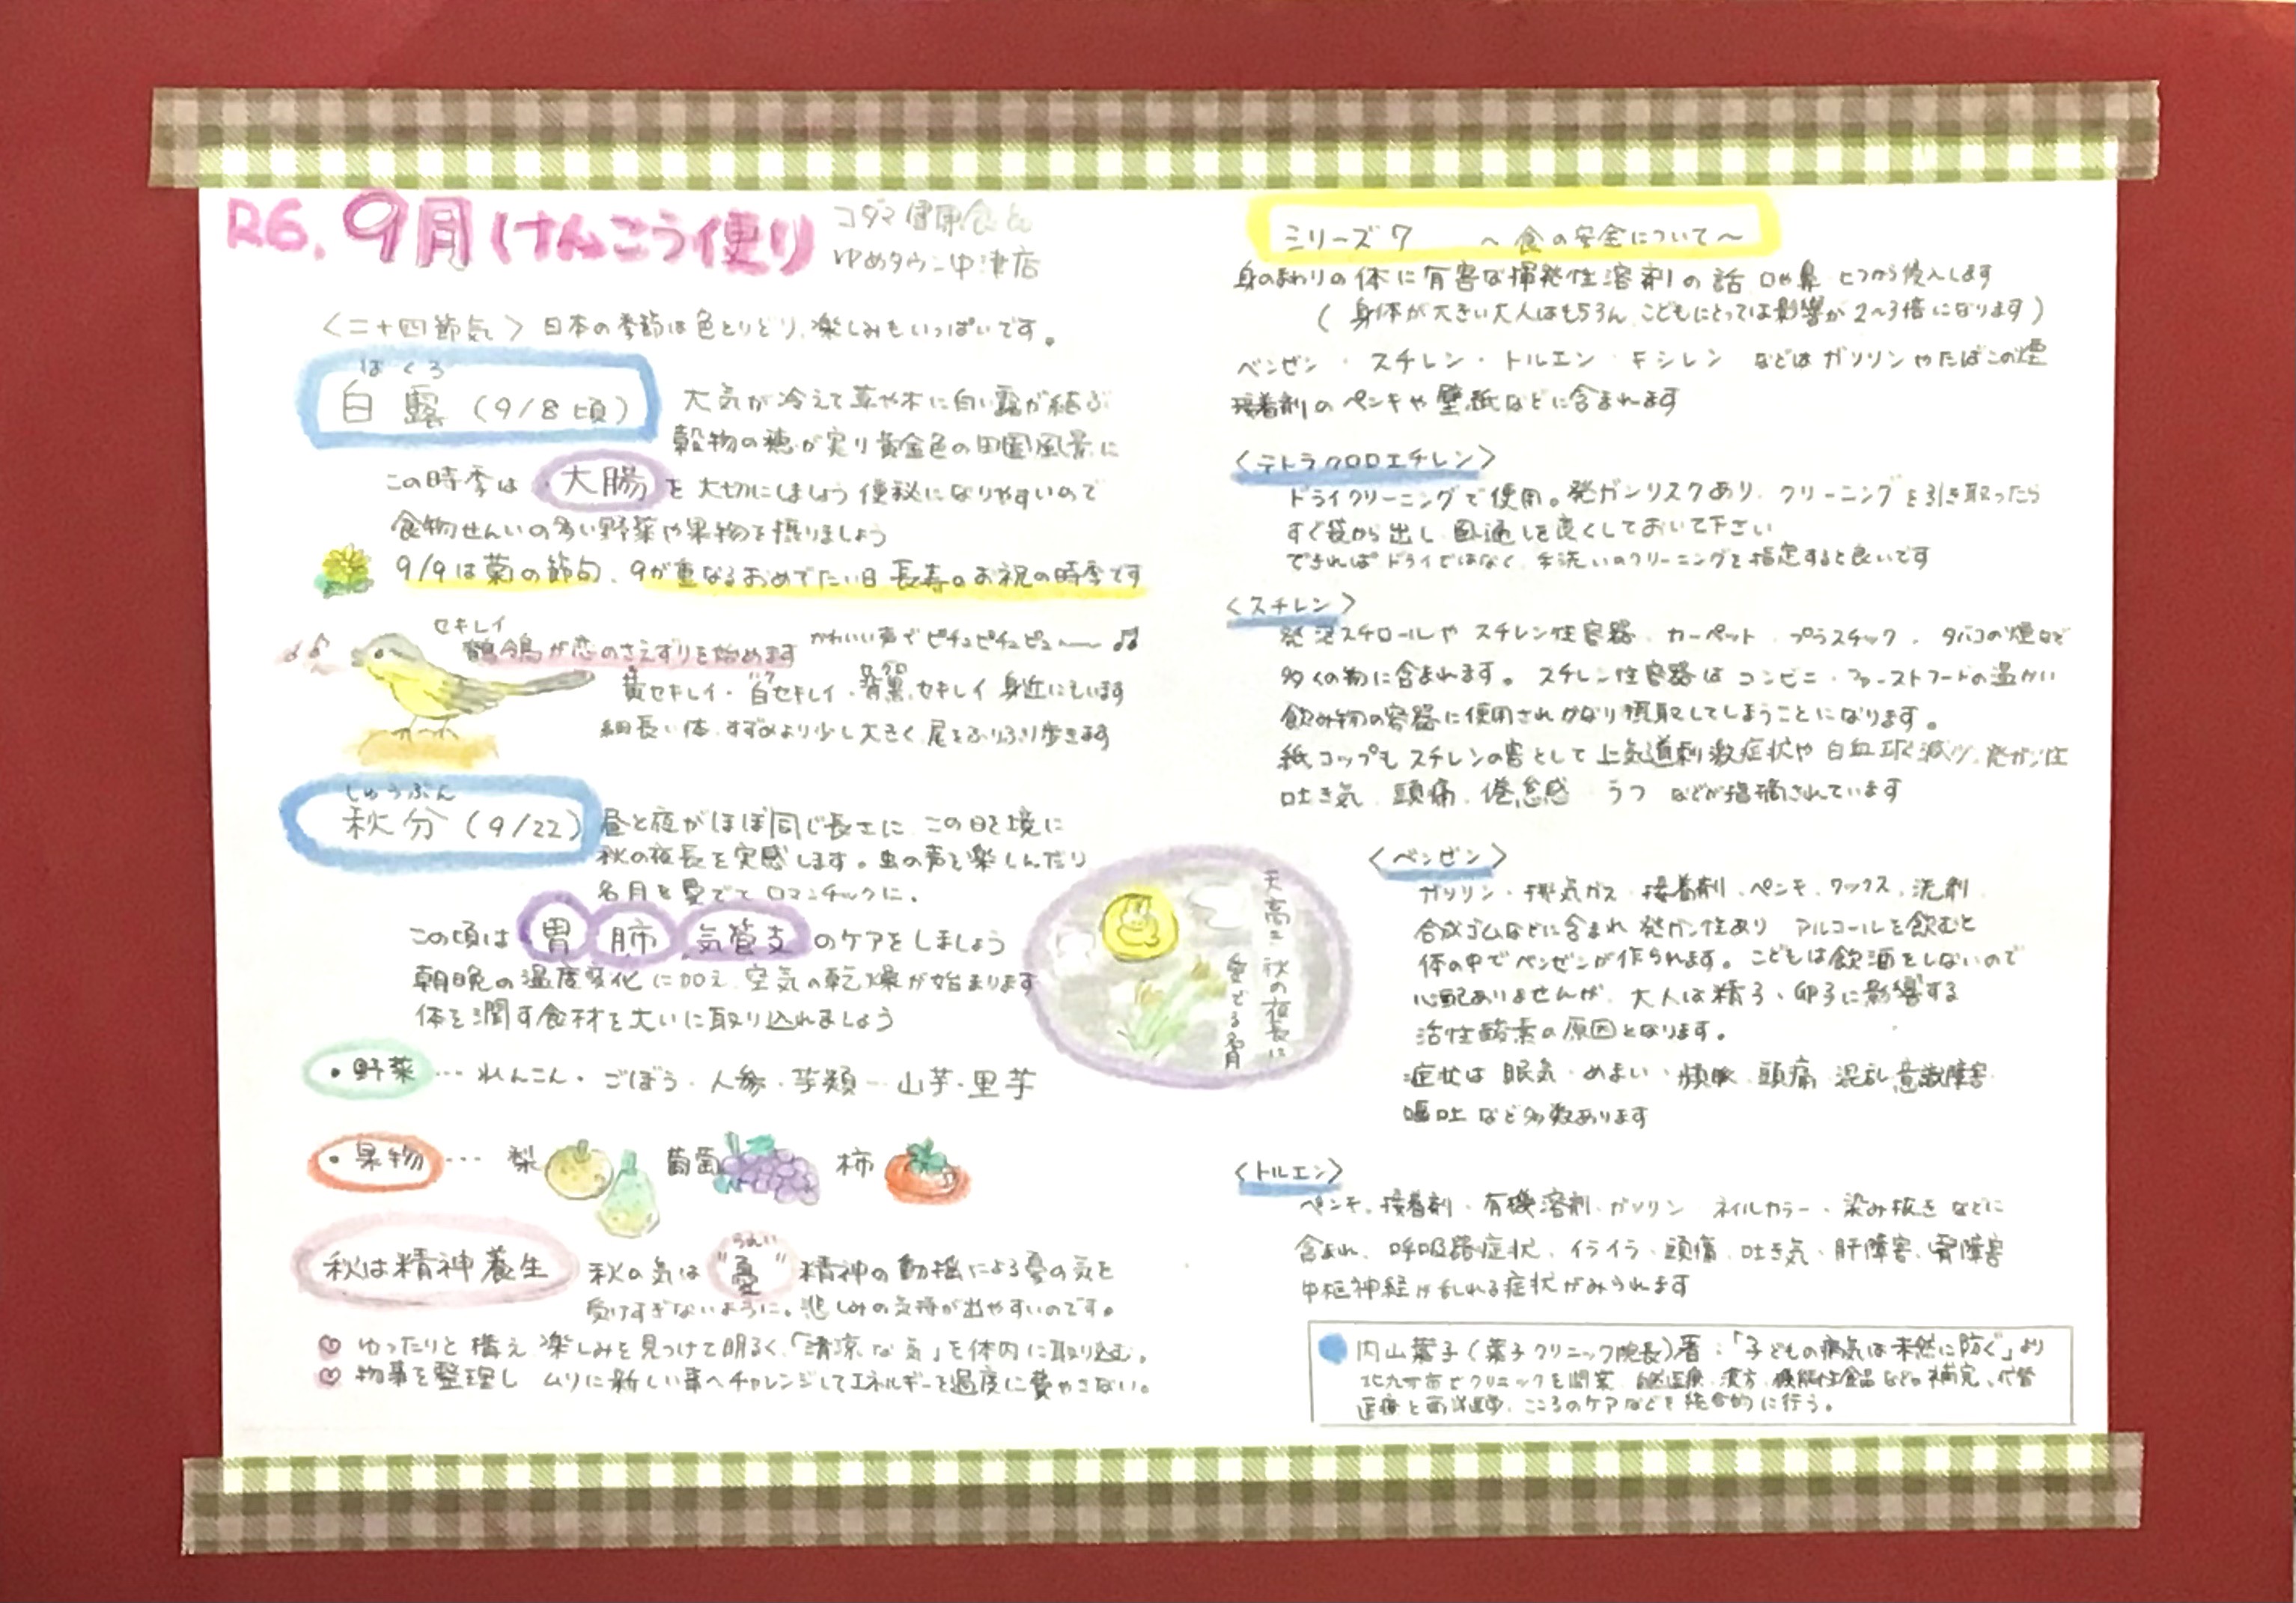 R6. 9月 けんこう便り
コダマ健康食品
ゆめタウン中津店
〈二十四節気〉日本の季節は色とりどり、楽しみもいっぱいです。
はくろ
白露 (9/8頃)
大気が冷えて草や木に白い露が結ぶ
穀物の穂が実り黄金色の田園風景に
この時季は 大腸 を大切にしましょう 便秘になりやすいので
食物せんいの多い野菜や果物を摂りましょう
9/9は菊の節句、9が重なるおめでたい日 長寿のお祝の時季です
セキレイ
鶺鴒が恋のさえずりを始めます かわいい声でピチュピチュピュ〜〜
キ ハク セグロ
黄セキレイ・白セキレイ・背黒セキレイ 身近にもいます
細長い体、すずめより少し大きく、尾をふりふり歩きます
しゅうぶん
秋分 (9/22)
昼と夜がほぼ同じ長さに この日を境に
秋の夜長を実感します。虫の声を楽しんだり
名月を愛でてロマンチックに。
この頃は 胃 肺 気管支 のケアをしましょう
朝晩の温度変化に加え、空気の乾燥が始まります
体を潤す食材を大いに取り込れましょう
・野菜… れんこん・ごぼう・人参・芋類…山芋・里芋
・果物… 梨 葡萄 柿
秋は精神養生
うれい
秋の気は "憂" 精神の動揺による憂の気を
受けすぎないように。悲しみの気持が出やすいのです。
♡ ゆったりと構え 楽しみを見つけて明るく、「清涼な気」を体内に取り込む。
♡ 物事を整理し ムリに新しい事へチャレンジしてエネルギーを過度に費やさない。
天高く 秋の夜長に
愛でる宵
シリーズ7 〜食の安全について〜
身のまわりの体に有害な揮発性溶剤の話 口や鼻 ヒフから侵入します
(身体が大きい大人はもちろん、こどもにとっては影響が2〜3倍になります)
ベンゼン・スチレン・トルエン・キシレン などはガソリンやたばこの煙
接着剤のペンキや壁紙などに含まれます
〈テトラクロロエチレン〉
ドライクリーニングで使用。発ガンリスクあり、クリーニングを引き取ったら
すぐ袋から出し、風通しを良くしておいて下さい
できればドライではなく、手洗いのクリーニングを指定すると良いです
〈スチレン〉
発泡スチロールや スチレン性容器、カーペット、プラスチック、タバコの煙など
多くの物に含まれます。スチレン性容器はコンビニ・ファーストフードの温かい
飲み物の容器に使用されかなり摂取してしまうことになります。
紙コップも スチレンの害として上気道刺激症状や白血球減少、発ガン性
吐き気、頭痛、倦怠感 うつ などが指摘されています
〈ベンゼン〉
ガソリン・排気ガス・接着剤、ペンキ、ワックス、洗剤
合成ゴムなどに含まれ発ガン性あり アルコールを飲むと
体の中でベンゼンが作られます。こどもは飲酒をしないので
心配ありませんが、大人は精子、卵子に影響する
活性酸素の原因となります。
症状は 眠気・めまい・頻脈、頭痛 混乱 意識障害
嘔吐 など多数あります
〈トルエン〉
ペンキ、接着剤・有機溶剤・ガソリン ネイルカラー・染み抜き などに
含まれ、呼吸器症状、イライラ・頭痛、吐き気・肝障害、腎障害
中枢神経が乱れる症状がみられます
内山葉子(葉子クリニック院長)著:「子どもの病気は未然に防ぐ」より
北九州市でクリニックを開業 自然医療、漢方、機能性食品などの補完、代替
医療と西洋医学、こころのケアなどを統合的に行う。